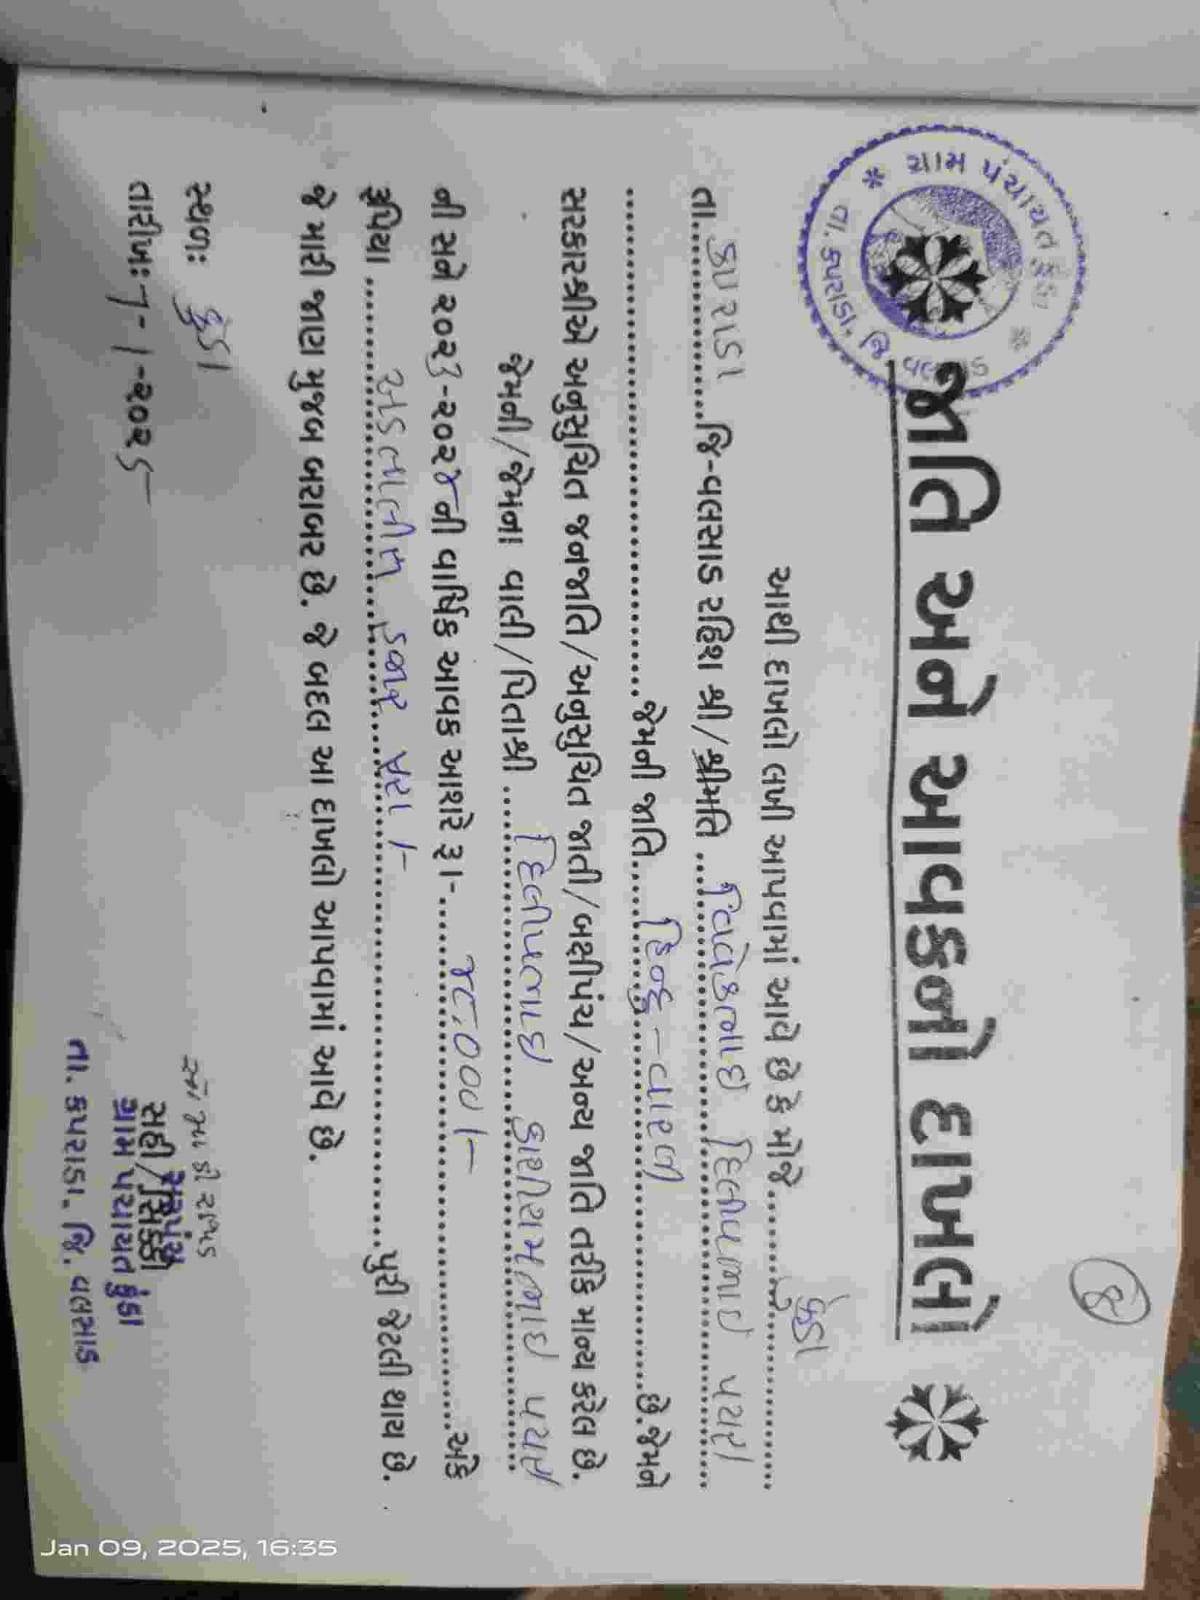 ૪
ગ્રામ પંચાયત કુંડા
તા. કપરાડા, જિ. વલસાડ
જાતિ અને આવકનો દાખલો
આથી દાખલો લખી આપવામાં આવે છે કે મોજે.......... કુંડા
તા. કપરાડા જિ-વલસાડ રહિશ શ્રી/શ્રીમતિ .. વિવેકભાઇ દિલીપભાઇ
.......... જેમની જાતિ.... હિન્દુ - વારલી .......... છે.જેમને
સરકારશ્રીએ અનુસુચિત જનજાતિ/અનુસુચિત જાતી/બક્ષીપંચ/અન્ય જાતિ તરીકે માન્ય કરેલ છે.
જેમની/જેમના વાલી/પિતાશ્રી .... દિલીપભાઇ
ની સને ૨૦૨૩-૨૦૨૪ની વાર્ષિક આવક આશરે રૂા-....... ૪૮૦૦૦/- ..........અંકે
રૂપિયા .......... અડતાલીસ હજાર પુરા/- .......... પુરી જેટલી થાય છે.
જે મારી જાણ મુજબ બરાબર છે. જે બદલ આ દાખલો આપવામાં આવે છે.
સ્થળ: કુંડા
તારીખ: ૧-૧-૨૦૨૫
સહી/સિક્કો
સરપંચ
ગ્રામ પંચાયત કુંડા
તા. કપરાડા, જિ. વલસાડ
Jan 09, 2025, 16:35